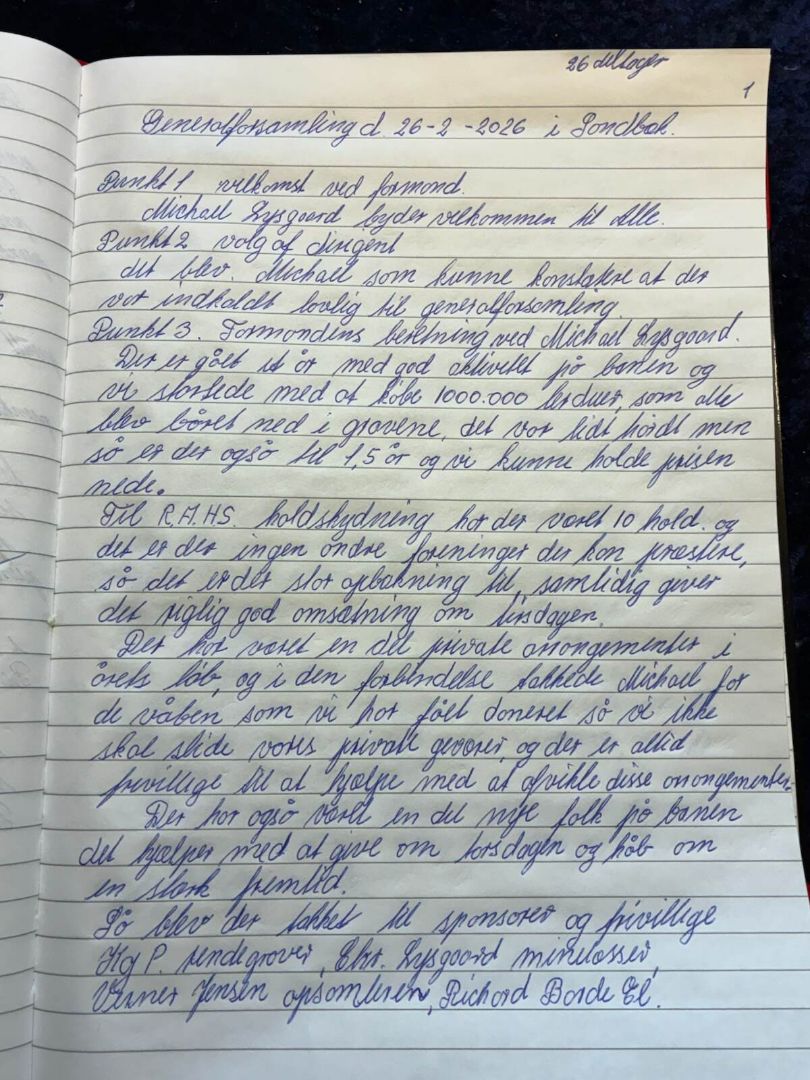 26 deltager
1
Generalforsamling d. 26-2-2026 i Sondbæk.
Punkt 1 velkomst ved formand.
Michael Lysgaard byder velkommen til alle.
Punkt 2 valg af dirigent
det blev Michael som kunne konstatere at der
var indkaldt lovlig til generalforsamling.
Punkt 3. Formandens beretning ved Michael Lysgaard.
Der er gået et år med god aktivitet på banen og
vi startede med at købe 1000.000 lerduer, som alle
blev båret ned i gravene, det var lidt hårdt men
så er der også til 1,5 år og vi kunne holde prisen
nede.
Til R.A.H.S. holdskydning har der været 10 hold. og
det er der ingen andre foreninger der kan præstere,
så det er der stor opbakning til, samtidig giver
det rigtig god omsætning om tirsdagen.
Der har været en del private arrangementer i
årets løb, og i den forbindelse takkede Michael for
de våben som vi har fået doneret så vi ikke
skal slide vores private geværer, og der er altid
frivillige til at hjælpe med at afvikle disse arrangementer.
Der har også været en del nye folk på banen
det hjælper med at give om torsdagen og håb om
en stærk fremtid.
Så blev der takket til sponsorer og frivillige
Kg P. rendegraver, Chr. Lysgaard minelæsser,
Verner Jensen opsamleren, Richard Borde El.